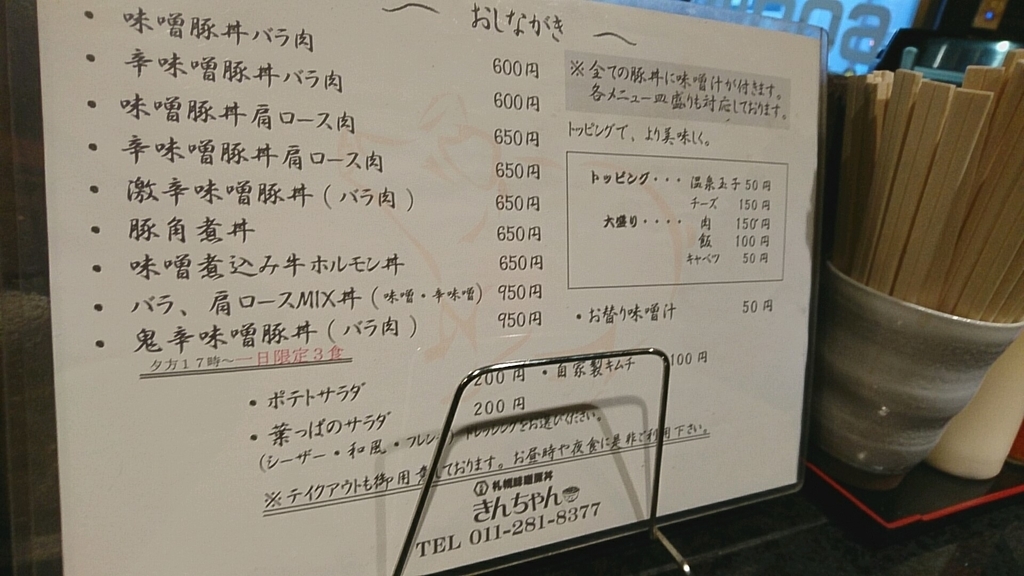 おしながき
・味噌豚丼バラ肉 600円
・辛味噌豚丼バラ肉 600円
・味噌豚丼肩ロース肉 650円
・辛味噌豚丼肩ロース肉 650円
・激辛味噌豚丼(バラ肉) 650円
・豚角煮丼 650円
・味噌煮込み牛ホルモン丼 650円
・バラ、肩ロースMIX丼(味噌・辛味噌) 950円
・鬼辛味噌豚丼(バラ肉) 950円
夕方17時~一日限定3食
※全ての豚丼に味噌汁が付きます。
各メニュー皿盛りも対応しております。
トッピングで、より美味しく。
トッピング・・・ 温泉玉子 50円
チーズ 150円
大盛り・・・・ 肉 150円
飯 100円
キャベツ 50円
・お替り味噌汁 50円
・ポテトサラダ 200円
・自家製キムチ 100円
・葉っぱのサラダ 200円
(シーザー・和風・フレンチ)ドレッシングをお選びください。
※テイクアウトも御用意しております。お昼時や夜食に是非ご利用下さい。
札幌味噌豚丼
きんちゃん
TEL 011-281-8377